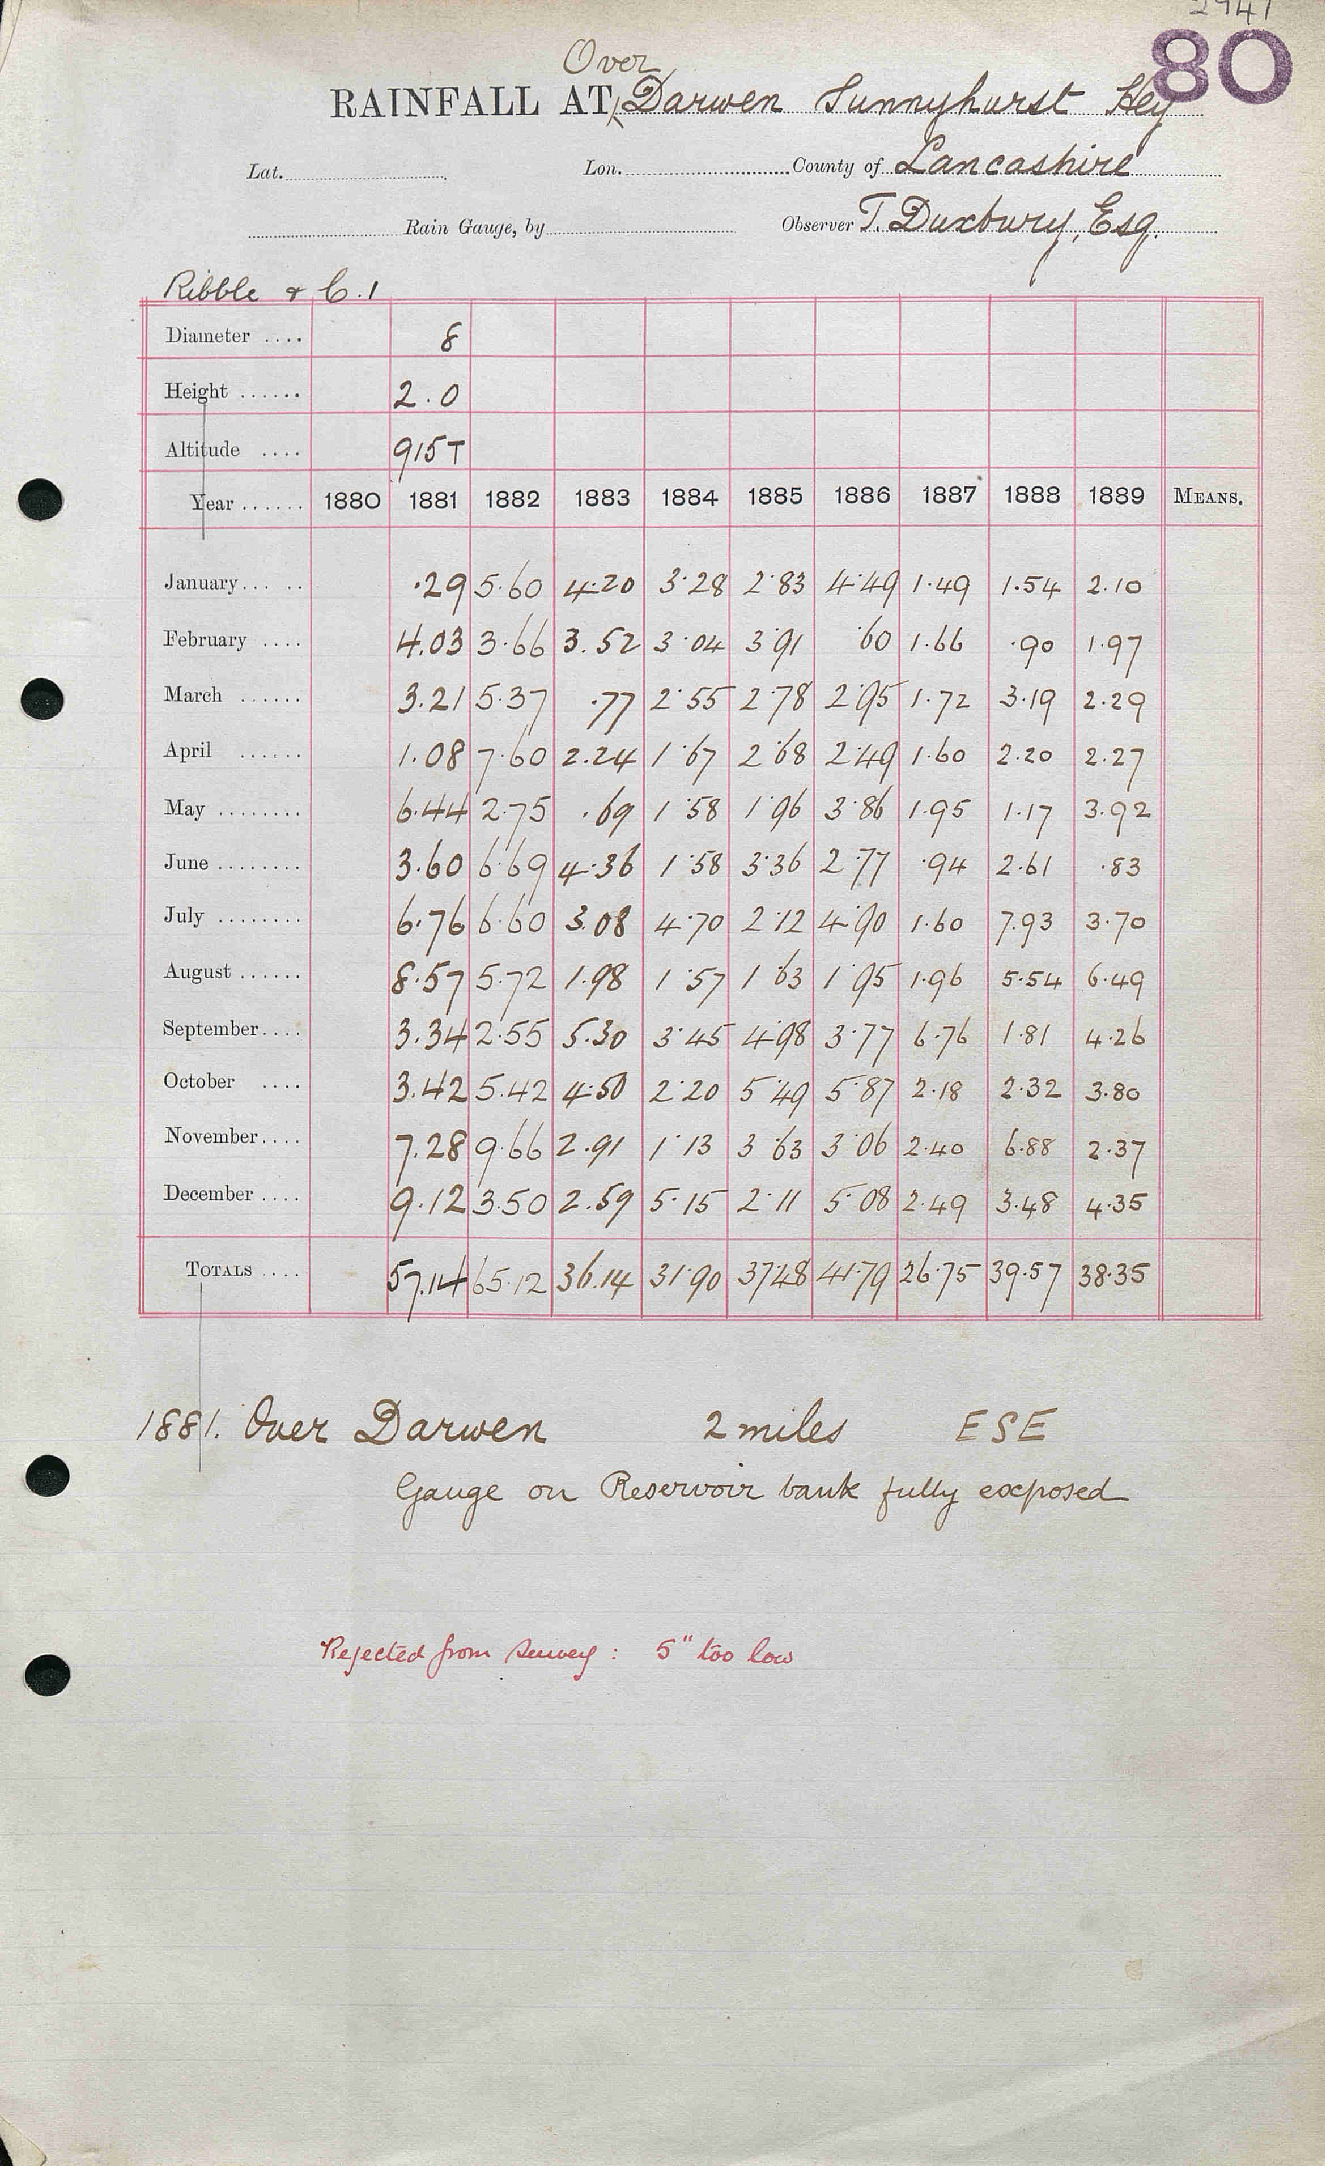 2941
80
Over
RAINFALL AT Darwen Sunnyhurst Hey
Lat. Lon. County of Lancashire
Rain Gauge, by Observer T. Duxbury, Esq.
Ribble & C.1
Diameter .... 8
Height ...... 2.0
Altitude .... 915T
Year ...... 1880 1881 1882 1883 1884 1885 1886 1887 1888 1889 MEANS.
January... .. .29 5.60 4.20 3.28 2.83 4.49 1.49 1.54 2.10
February .... 4.03 3.66 3.52 3.04 3.91 .60 1.66 .90 1.97
March ...... 3.21 5.37 .77 2.55 2.78 2.95 1.72 3.19 2.29
April ...... 1.08 7.60 2.24 1.67 2.68 2.49 1.60 2.20 2.27
May ........ 6.44 2.75 .69 1.58 1.96 3.86 1.95 1.17 3.92
June ........ 3.60 6.69 4.36 1.58 3.36 2.77 .94 2.61 .83
July ........ 6.76 6.60 3.08 4.70 2.12 4.90 1.60 7.93 3.70
August ...... 8.57 5.72 1.98 1.57 1.63 1.95 1.96 5.54 6.49
September.... 3.34 2.55 5.30 3.45 4.98 3.77 6.76 1.81 4.26
October .... 3.42 5.42 4.50 2.20 5.49 5.87 2.18 2.32 3.80
November.... 7.28 9.66 2.91 1.13 3.63 3.06 2.40 6.88 2.37
December .... 9.12 3.50 2.59 5.15 2.11 5.08 2.49 3.48 4.35
TOTALS .... 57.14 65.12 36.14 31.90 37.48 41.79 26.75 39.57 38.35
1881. Over Darwen 2 miles ESE
Gauge on Reservoir bank fully exposed
Rejected from survey : 5" too low